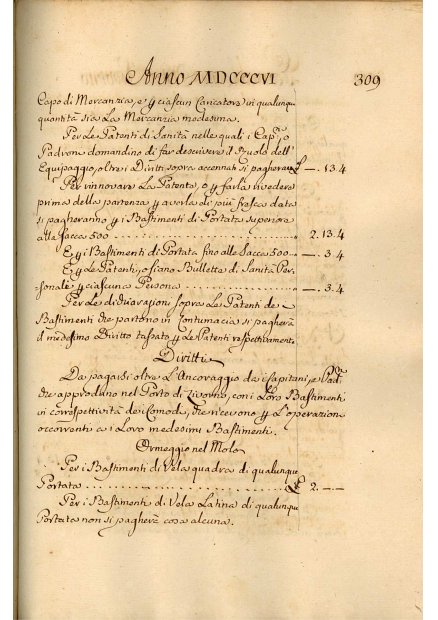 Anno MDCCCVI 309
Capo di Mercanzia, e p ciascun Caricatore in qualunque
quantità sia La Mercanzia medesima.
Per Le Patenti di Sanità nelle quali i Cap.ni, o
Padroni domandino di far descrivere il Ruolo dell'
Equipaggio, oltre i Diritti sopra accennati si pagherà £ —. 13. 4
Per rinnovare La Patente, o p farla rivedere
prima della partenza p averla di più fresca data
si pagheranno p i Bastimenti di Portata superiore
alle Sacca 500 " 2. 13. 4
E p i Bastimenti di Portata fino alle Sacca 500 — " —. 3. 4
E p Le Patenti, o siano Bullette di Sanità Per-
sonale p ciascuna Persona " —. 3. 4
Per Le dichiarazioni sopra Le Patenti de
Bastimenti che partono in Contumacia si pagherà
il medesimo Diritto tassato p Le Patenti respettivament.
Diritti
Da pagarsi oltre L'Ancoraggio da i Capitani, e Pad.ni
che approdano nel Porto di Livorno, con i Loro Bastimenti
in correspettività de Comodi, che ricevono p L'operazioni
occorrenti a i Loro medesimi Bastimenti.
Ormeggio nel Molo
Per i Bastimenti di Vela quadra di qualunque
Portata £ 2. — —
Per i Bastimenti di Vela Latina di qualunque
Portata non si pagherà cosa alcuna.